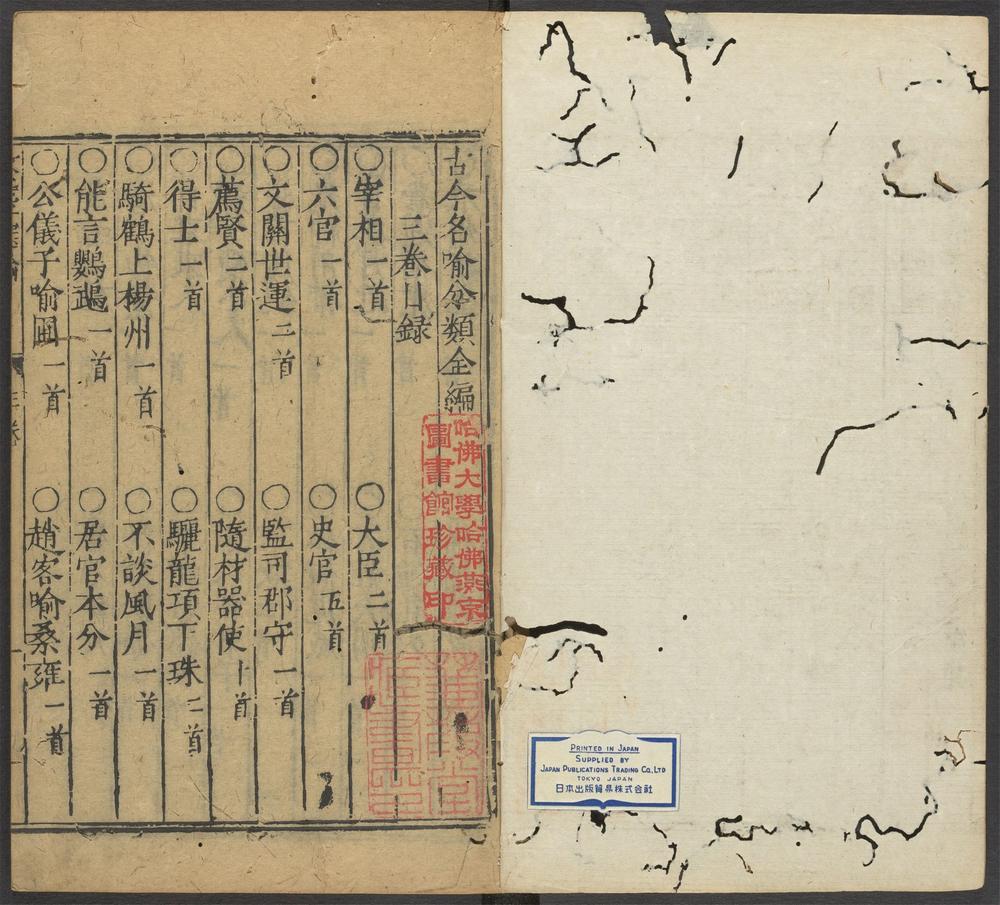 古今名喻分類全編
三卷目録
○宰相一首 ○大臣二首
○六官一首 ○史官五首
○文關世運二首 ○監司郡守一首
○薦賢二首 ○隨材器使十首
○得士一首 ○驪龍項下珠二首
○騎鶴上楊州一首 ○不談風月一首
○能言鸚鵡一首 ○居官本分一首
○公儀子喻圃一首 ○趙客喻桑雍一首
哈佛大學哈佛燕京
圖書館珍藏印
PRINTED IN JAPAN
SUPPLIED BY
JAPAN PUBLICATIONS TRADING CO., LTD
TOKYO JAPAN
日本出版貿易株式会社